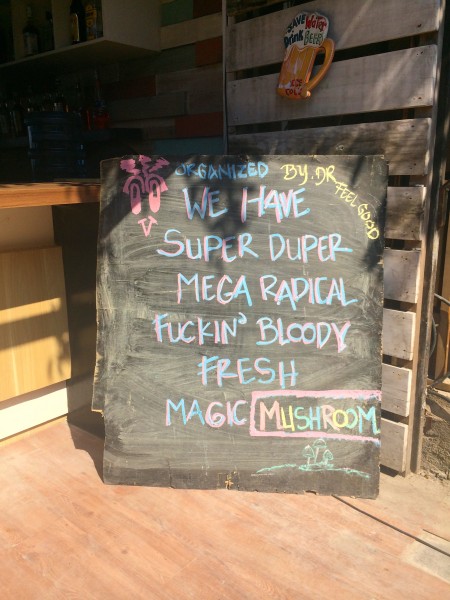 SAVE WATER
DRINK BEER
ICE COLD
ORGANIZED BY. DR. FEELGOOD
WE HAVE
SUPER DUPER
MEGA RADICAL
FUCKIN' BLOODY
FRESH
MAGIC MUSHROOM